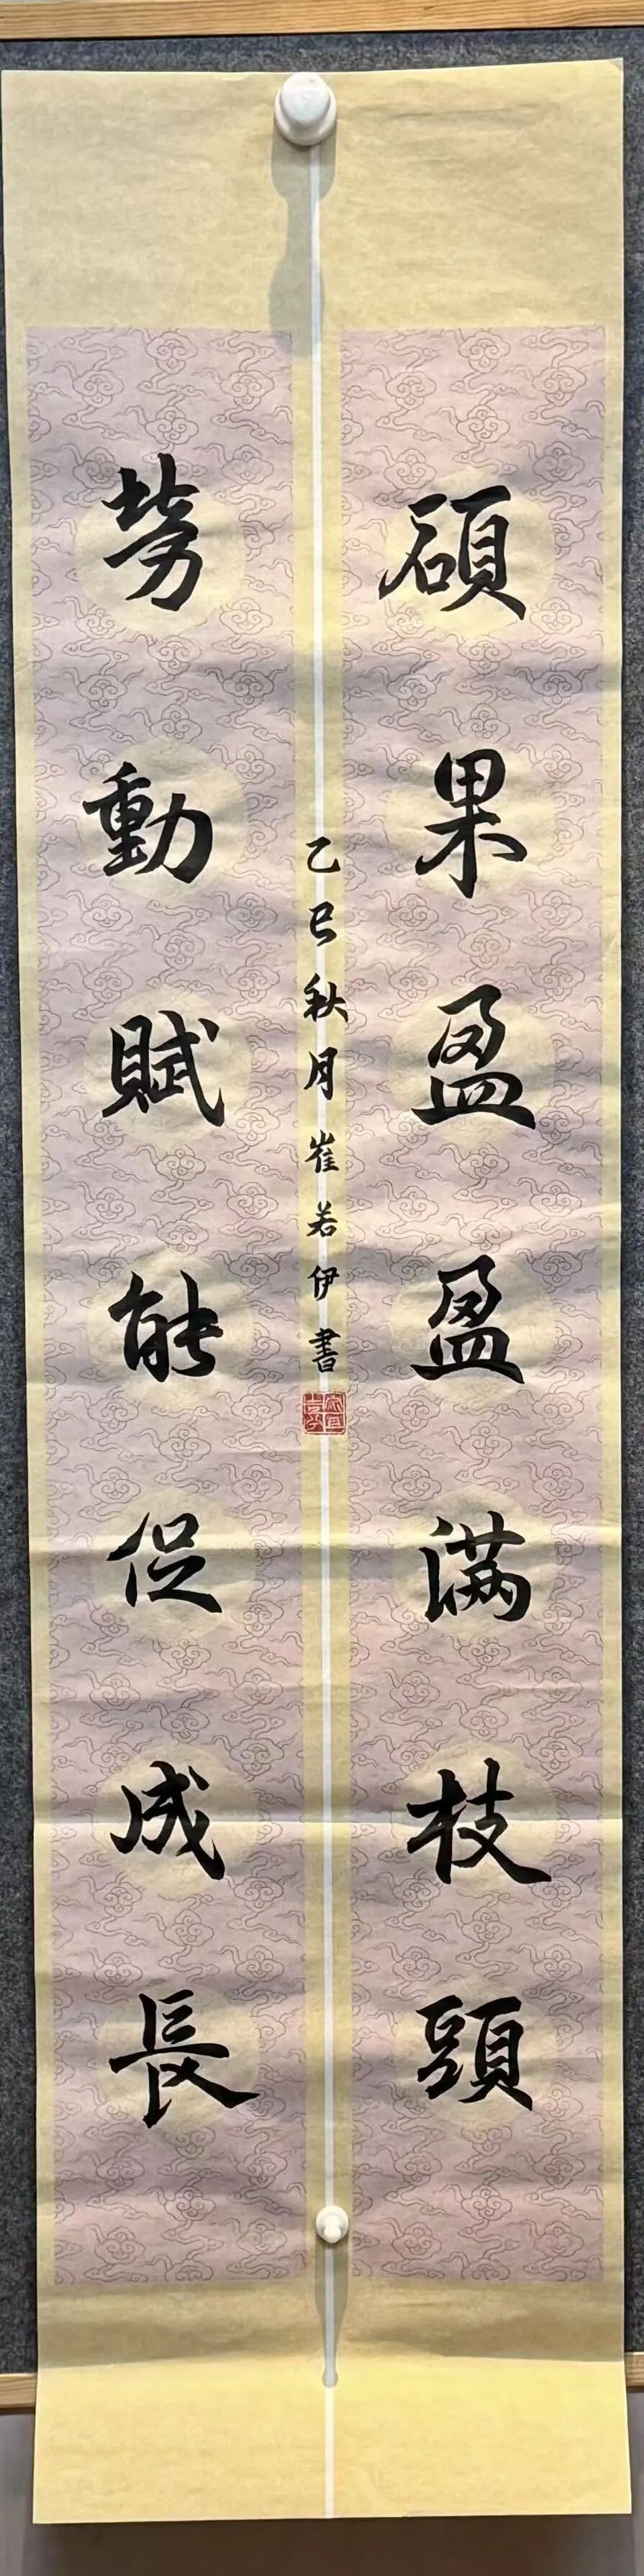 碩果盈盈滿枝頭
乙巳秋月崔若伊書
勞動賦能促成長